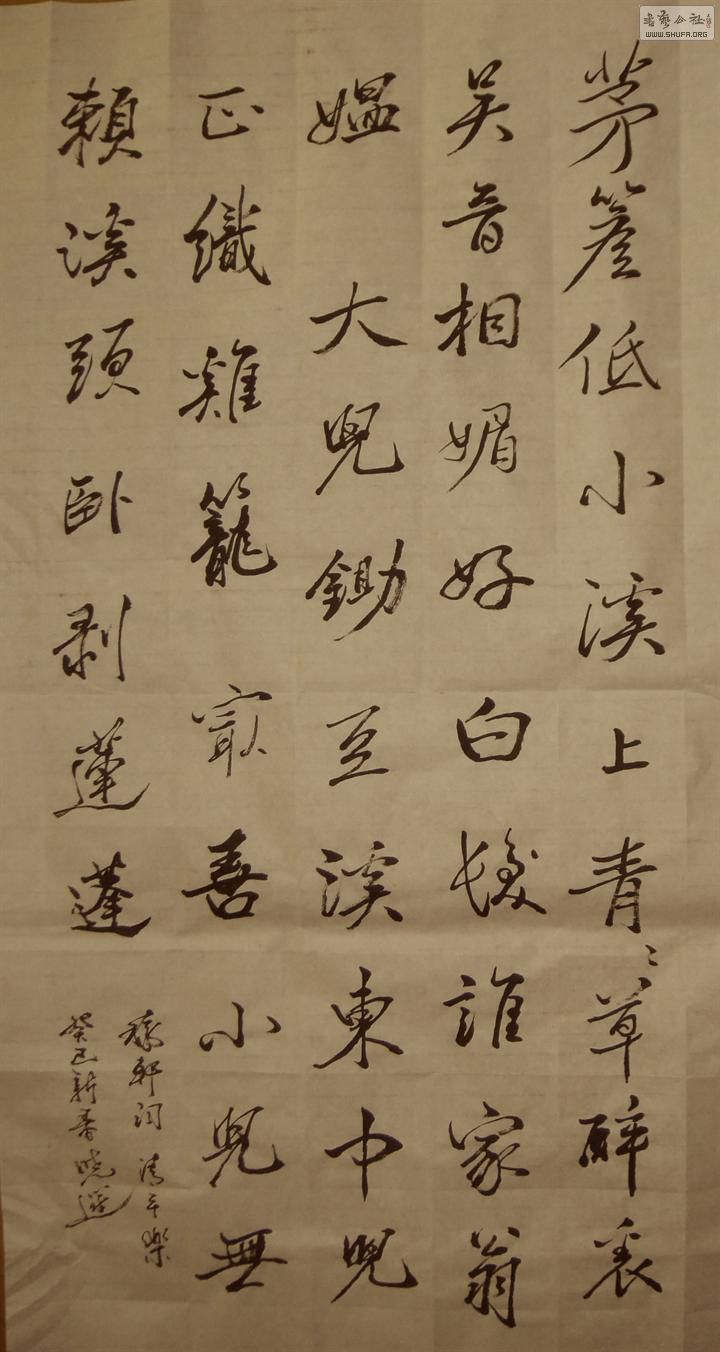 茅簷低小溪上青〻草醉裏
吴音相媚好白髮誰家翁
媪大兒鋤豆溪東中兒
正織雞籠冣喜小兒無
賴溪頭卧剥蓮蓬
稼軒词清平樂
癸巳新春曉
書藝公社
WWW.SHUFA.ORG